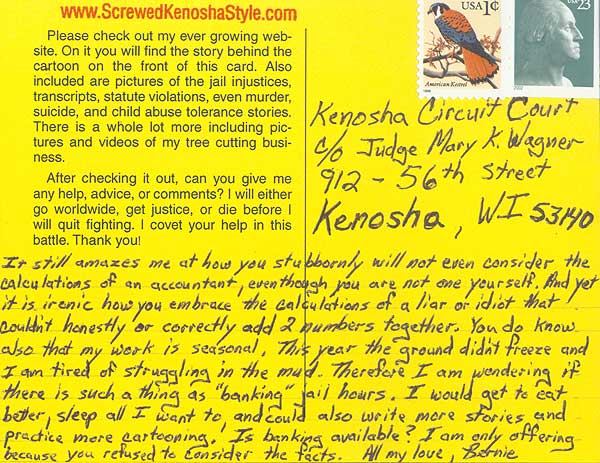 www.ScrewedKenoshaStyle.com
Please check out my ever growing web-
site. On it you will find the story behind the
cartoon on the front of this card. Also
included are pictures of the jail injustices,
transcripts, statute violations, even murder,
suicide, and child abuse tolerance stories.
There is a whole lot more including pic-
tures and videos of my tree cutting busi-
ness.
After checking it out, can you give me
any help, advice, or comments? I will either
go worldwide, get justice, or die before I
will quit fighting. I covet your help in this
battle. Thank you!
USA 1¢
American Kestrel
1999
USA 23
2002
Kenosha Circuit Court
c/o Judge Mary K. Wagner
912 - 56th Street
Kenosha, WI 53140
It still amazes me at how you stubbornly will not even consider the
calculations of an accountant, eventhough you are not one yourself. And yet
it is ironic how you embrace the calculations of a liar or idiot that
couldn't honestly or correctly add 2 numbers together. You do know
also that my work is seasonal. This year the ground didn't freeze and
I am tired of struggling in the mud. Therefore I am wondering if
there is such a thing as "banking" jail hours. I would get to eat
better, sleep all I want to, and could also write more stories and
practice more cartooning. Is banking available? I am only offering
because you refused to consider the facts. All my love, Bernie